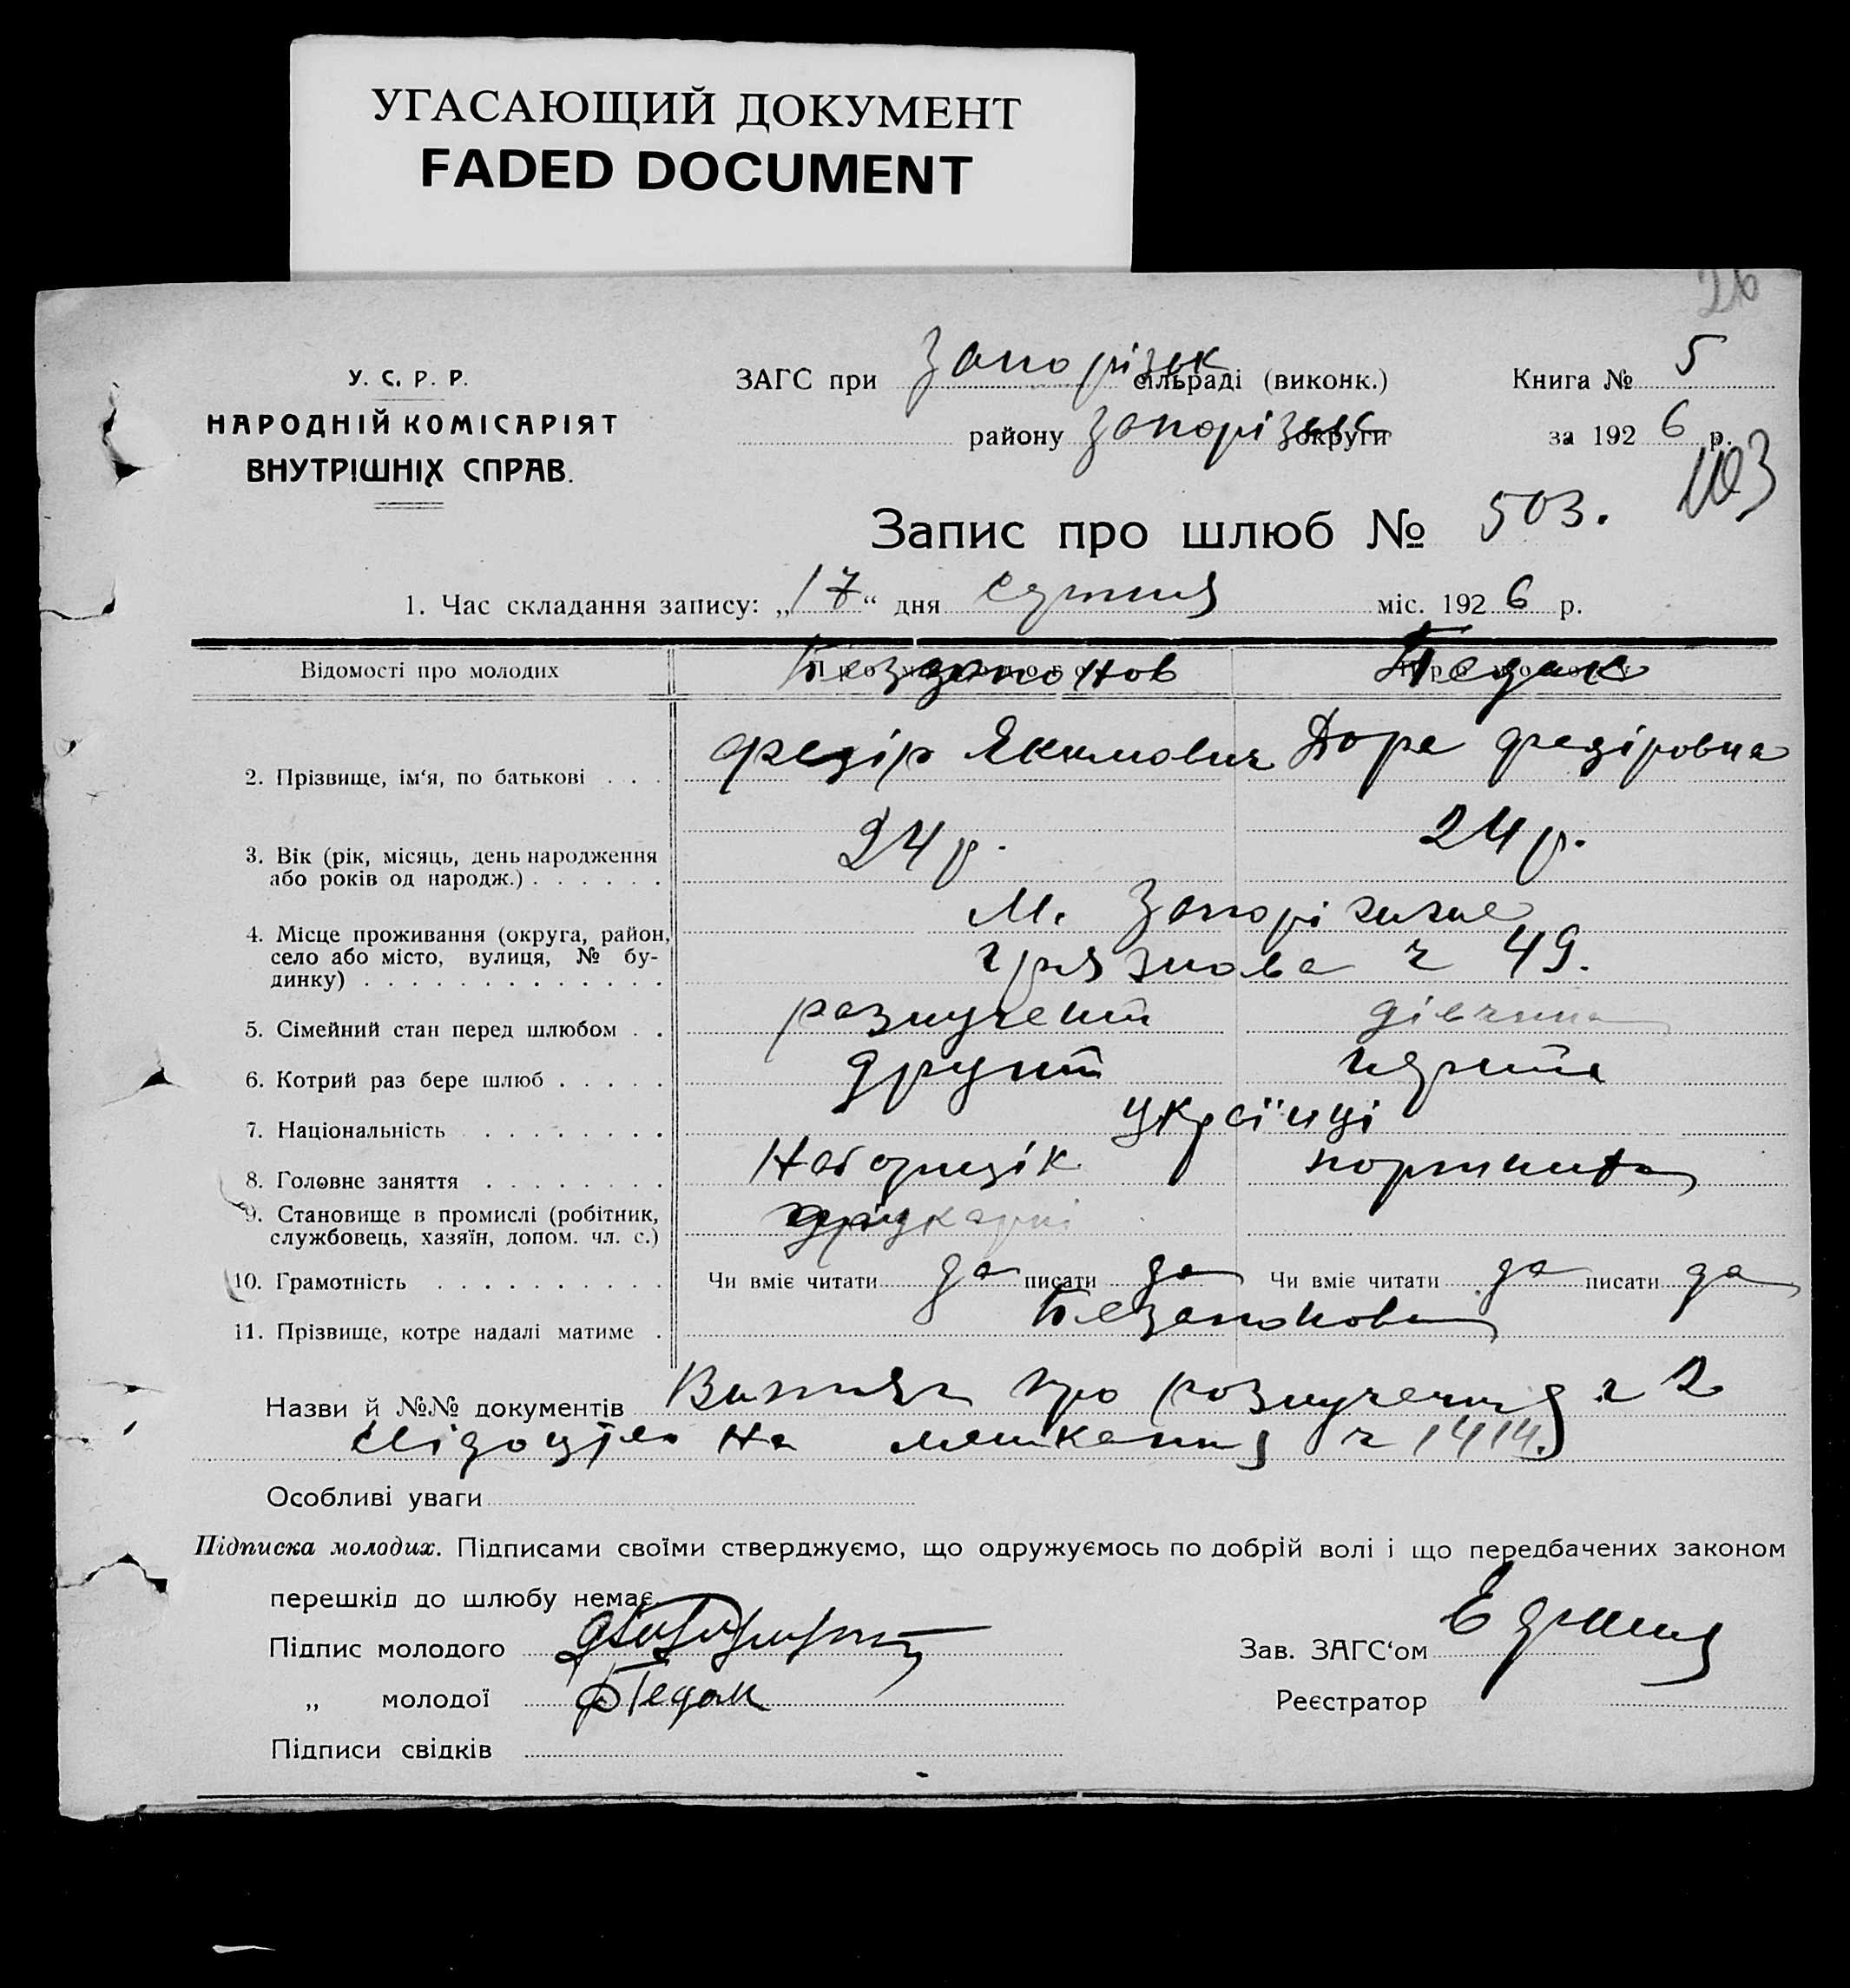 УГАСАЮЩИЙ ДОКУМЕНТ
FADED DOCUMENT
26
У. С. Р. Р.
НАРОДНІЙ КОМІСАРІЯТ
ВНУТРІШНІХ СПРАВ.
ЗАГС при Запорізьк сільраді (виконк.) Книга № 5
району Запорізьк округи за 192 6 р.
103
Запис про шлюб № 503.
1. Час складання запису: „17“ дня серпня міс. 192 6 р.
Відомості про молодих
Педак
2. Прізвище, ім‘я, по батькові . . . Федір Якимович Дора Федіровна
3. Вік (рік, місяць, день народження 24 р. 24 р.
або років од народж.) . . . . . .
4. Місце проживання (округа, район, М. Запоріжже
село або місто, вулиця, № бу- Грязнова ч 49.
динку) . . . . . . . . . . . . .
5. Сімейний стан перед шлюбом . . разлучений дівчина
6. Котрий раз бере шлюб . . . . . другий перший
7. Національність . . . . . . . . Українці
8. Головне заняття . . . . . . . . Наборщік портниха
9. Становище в промислі (робітник, друкарні
службовець, хазяїн, допом. чл. с.)
10. Грамотність . . . . . . . . . . Чи вміє читати да писати да Чи вміє читати да писати да
11. Прізвище, котре надалі матиме .
Назви й №№ документів про розлучення ч 2
на мешкання ч 1414.
Особливі уваги
Підписка молодих. Підписами своїми стверджуємо, що одружуємось по добрій волі і що передбачених законом
перешкід до шлюбу немає.
Підпис молодого Зав. ЗАГС‘ом
„ молодої Педак Реєстратор
Підписи свідків